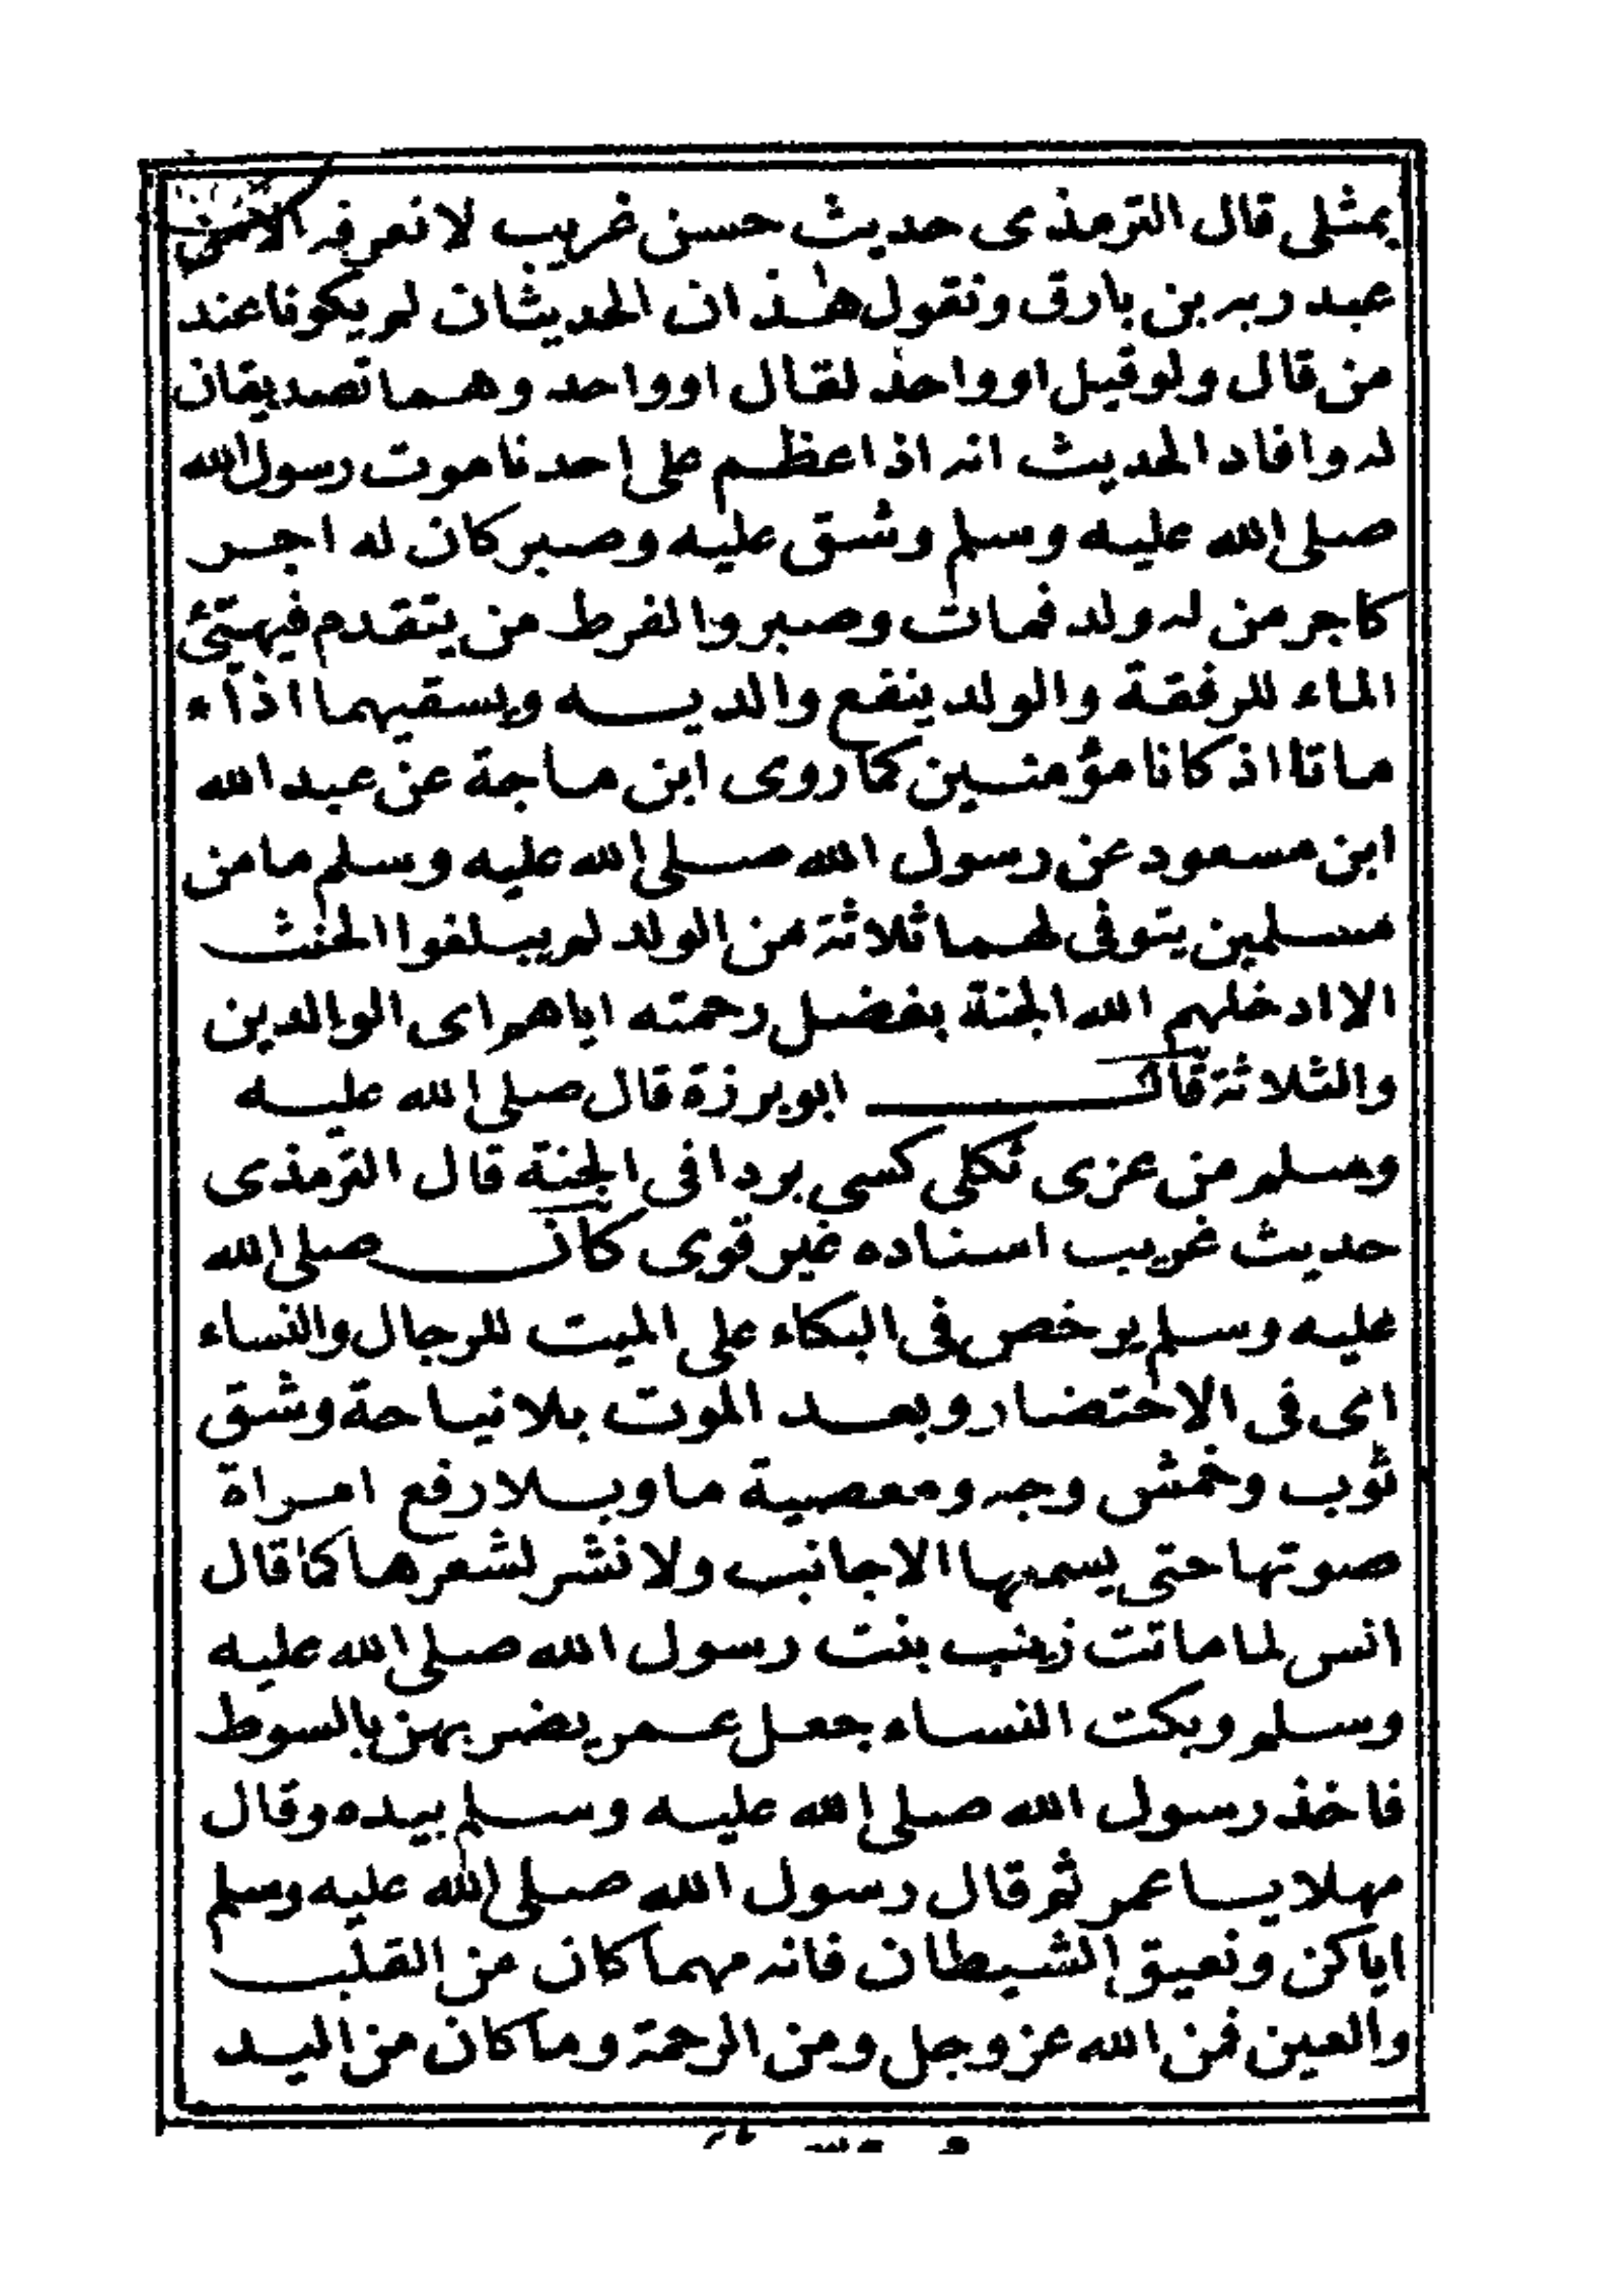 بمثلى قال الترمذى حديث حسن غريب لا نعرفه الا من
عبد ربه بن بارق ونقول هٰذان الحديثان لم يكونا عند
من قال ولو قيل او واحدٌ لقال او واحد وهما تصديقان
له وافاد الحديث انه اذا عظم على احدنا موت رسول الله
صلى الله عليه وسلم وشق عليه وصبر كان له اجر
كاجر من له ولد فمات وصبر والفرط من يتقدم فيهيئ
الماء للرفقة والولد ينفع والديه ويسقيهما اذا
ماتا اذ كانا مؤمنين كما روى ابن ماجة عن عبد الله
ابن مسعود عن رسول الله صلى الله عليه وسلم ما من
مسلمين يتوفى لهما ثلاثة من الولد لم يبلغوا الحنث
الا ادخلهم الله الجنة بفضل رحمته اياهم اى الوالدين
والثلاثة قال ابو برزة قال صلى الله عليه
وسلم من عزى ثكلى كسى بردا فى الجنة قال الترمذى
حديث غريب اسناده غير قوى كان صلى الله
عليه وسلم يرخص فى البكاء على الميت للرجال والنساء
اى فى الاحتضار وبعد الموت بلا نياحة وشق
ثوب وخمش وجه ومعصية ما وبلا رفع امراة
صوتها حتى يسمعها الاجانب ولا نشر لشعرها كما قال
انس لما ماتت زينب بنت رسول الله صلى الله عليه
وسلم وبكت النساء جعل عمر يضربهن بالسوط
فاخذ رسول الله صلى الله عليه وسلم بيده وقال
مهلا يا عمر ثم قال رسول الله صلى الله عليه وسلم
اياكن ونعيق الشيطان فانه مهما كان من القلب
والعين فمن الله عز وجل ومن الرحمة وما كان من اليد